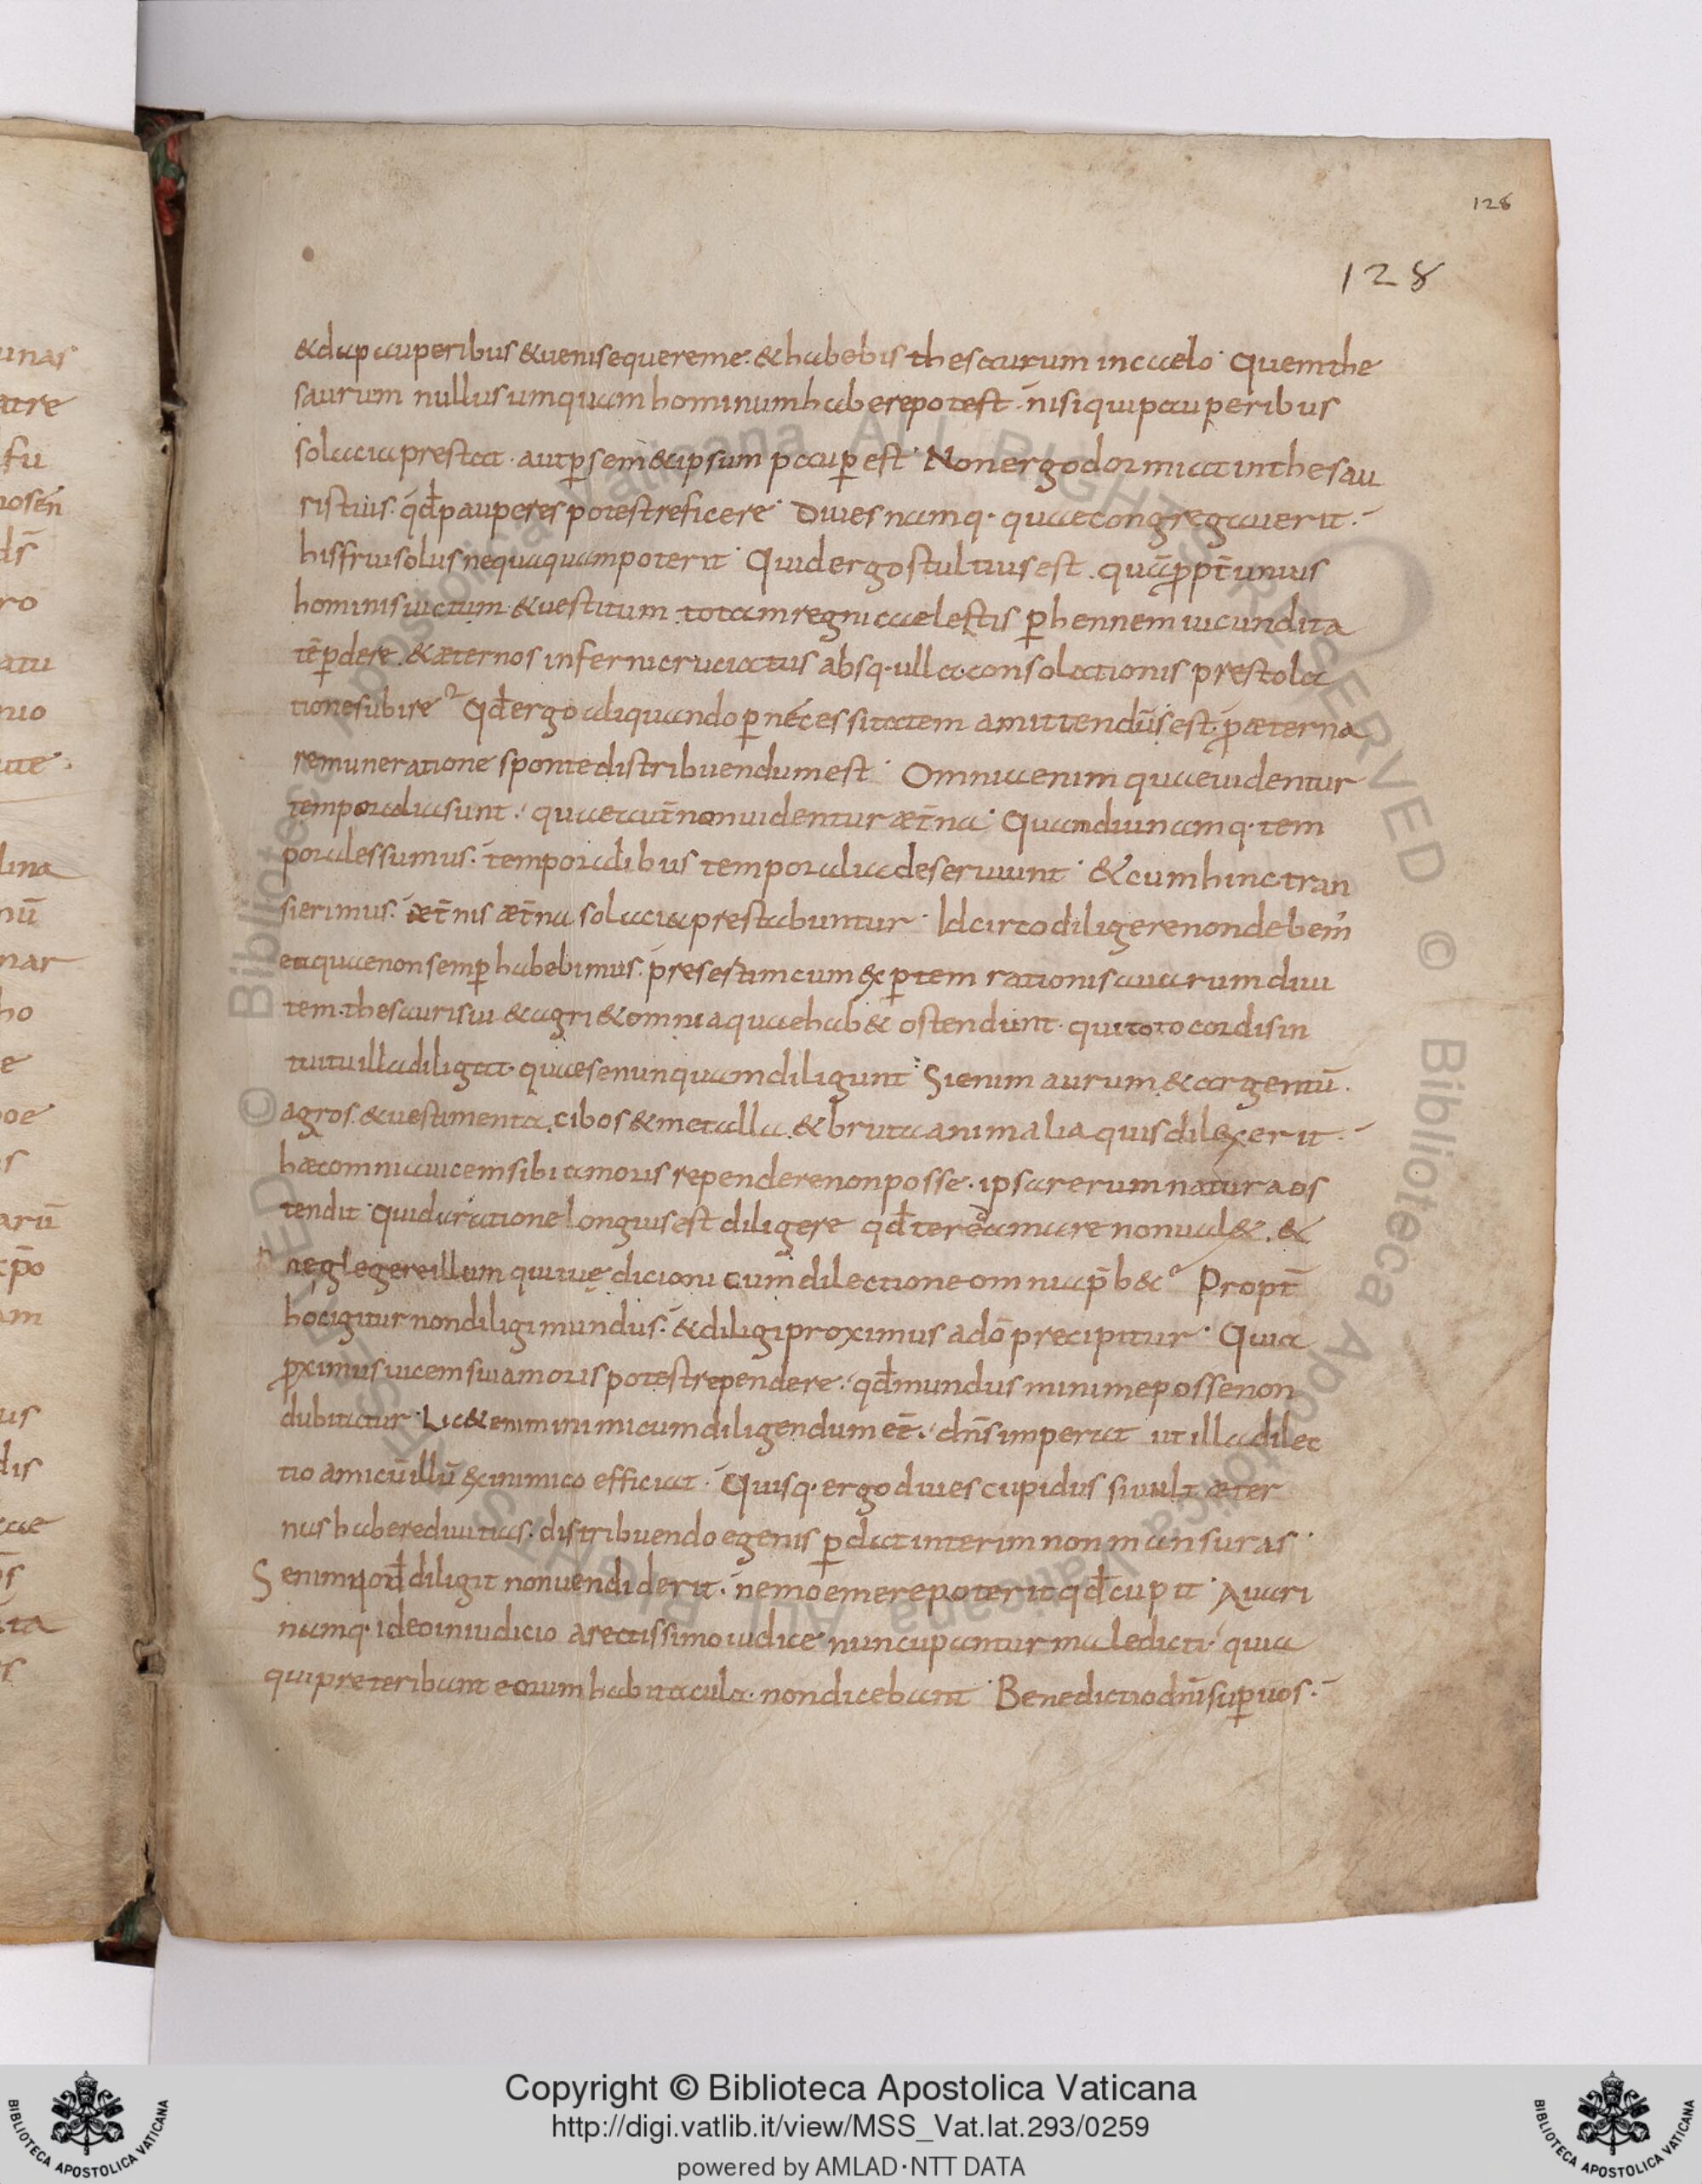 128
128
&da pauperibus &ueni sequere me. & habebis thesaurum in caelo. Quem the
saurum nullus umquam hominum habere potest. nisi qui pauperibus
solacia prestat. aut ꝑ sem&ipsum pauꝑ est. Non ergo dormiat in thesau
ris tuis. qđ pauperes potest reficere. Diues namq. quae congregauerit.
his frui solus nequaquam poterit. Quid ergo stultius est. quā ꝓpt̄ unius
hominis uictum &uestitum totam regni caelestis ꝑhennem iucundita
tē ꝑdere. &æternos inferni cruciatus absq. ulla consolationis prestola
tione subire. Qđ ergo aliquando ꝑ necessitatem amittendū est. ꝓ æterna
remuneratione sponte distribuendum est. Omnia enim quae uidentur
temporalia sunt. quae aut̄ non uidentur æt̄na. Quandiu namq. tem
porales sumus. temporalibus temporalia deseruiunt. & cum hinc tran
sierimus. æt̄nis æt̄na solacia prestabuntur. Idcirco diligere non debem̄
ea quae non semꝑ habebimus. presertim cum exꝑtem rationis auarum diui
tem. thesauri sui &agri &omnia quae hab& ostendunt. qui toto cordis in
tuitu illa diligat. quae se nunquam diligunt. Si enim aurum &argentū.
agros. &uestimenta. cibos &metalla. &bruta animalia quis dilexerit.
hæc omnia uicem sibi amoris rependere non posse. ipsa rerum natura os
tendit. Quid a ratione longius est diligere qđ te redamare non ual&. &
neglegere illum qui tuę dicioni cum dilectione omnia p̄b&. Propt̄
hoc igitur non diligi mundus. &diligi proximus a dō precipitur. Quia
ꝓximus uicem sui amoris potest rependere. qđ mundus minime posse non
dubitatur. Lic& enim inimicum diligendum eē. dn̄s imperat ut illa dilec
tio amicū illū ex inimico efficiat. Quisq. ergo diues cupidus si uult æter
nas habere diuitias. distribuendo egenis ꝑdat interim non mansuras.
Si enim qđ diligit non uendiderit. nemo emere poterit qđ cupit. Auari
namq. ideo in iudicio a rectissimo iudice nuncupantur maledicti. quia
qui preteribant eorum habitacula. non dicebant. Benedictio dn̄i suꝑ uos.
unas
atre
fu
mosen̄
ds̄
ro
atu
nuo
lina
nū
nar
ho
e
poe
s
arū
am
us
dis
cae
Copyright © Biblioteca Apostolica Vaticana
http://digi.vatlib.it/view/MSS_Vat.lat.293/0259
powered by AMLAD·NTT DATA
BIBLIOTECA APOSTOLICA VATICANA
BIBLIOTECA APOSTOLICA VATICANA